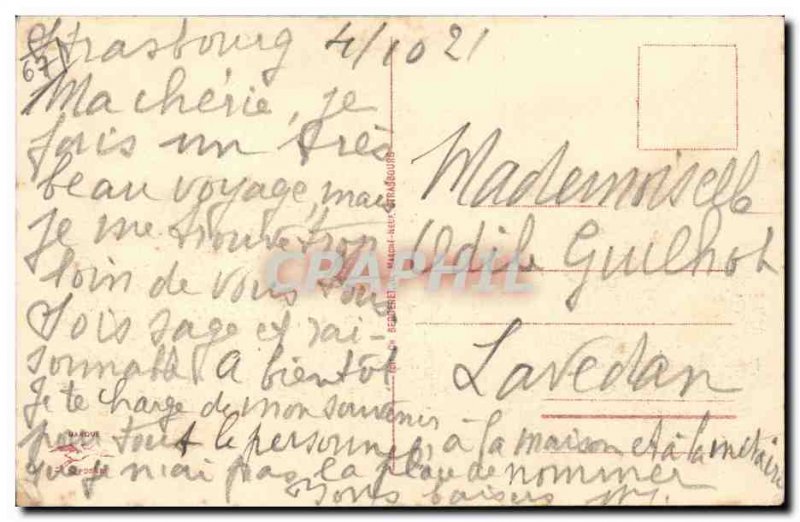 Strasbourg 4/10 21
(67)
Ma chérie, je
fais un très
beau voyage, mais
je me trouve trop
loin de vous tous
Sois sage et rai-
sonnable. A bientôt
Je te charge de mon souvenir
pour tout le personnel, à la maison et à la métairie
que je n'ai pas la place de nommer
Bons baisers
Mademoiselle
Odile Guilhot
Lavedan
STRASBOURG
MARQUE
CPARPHIL